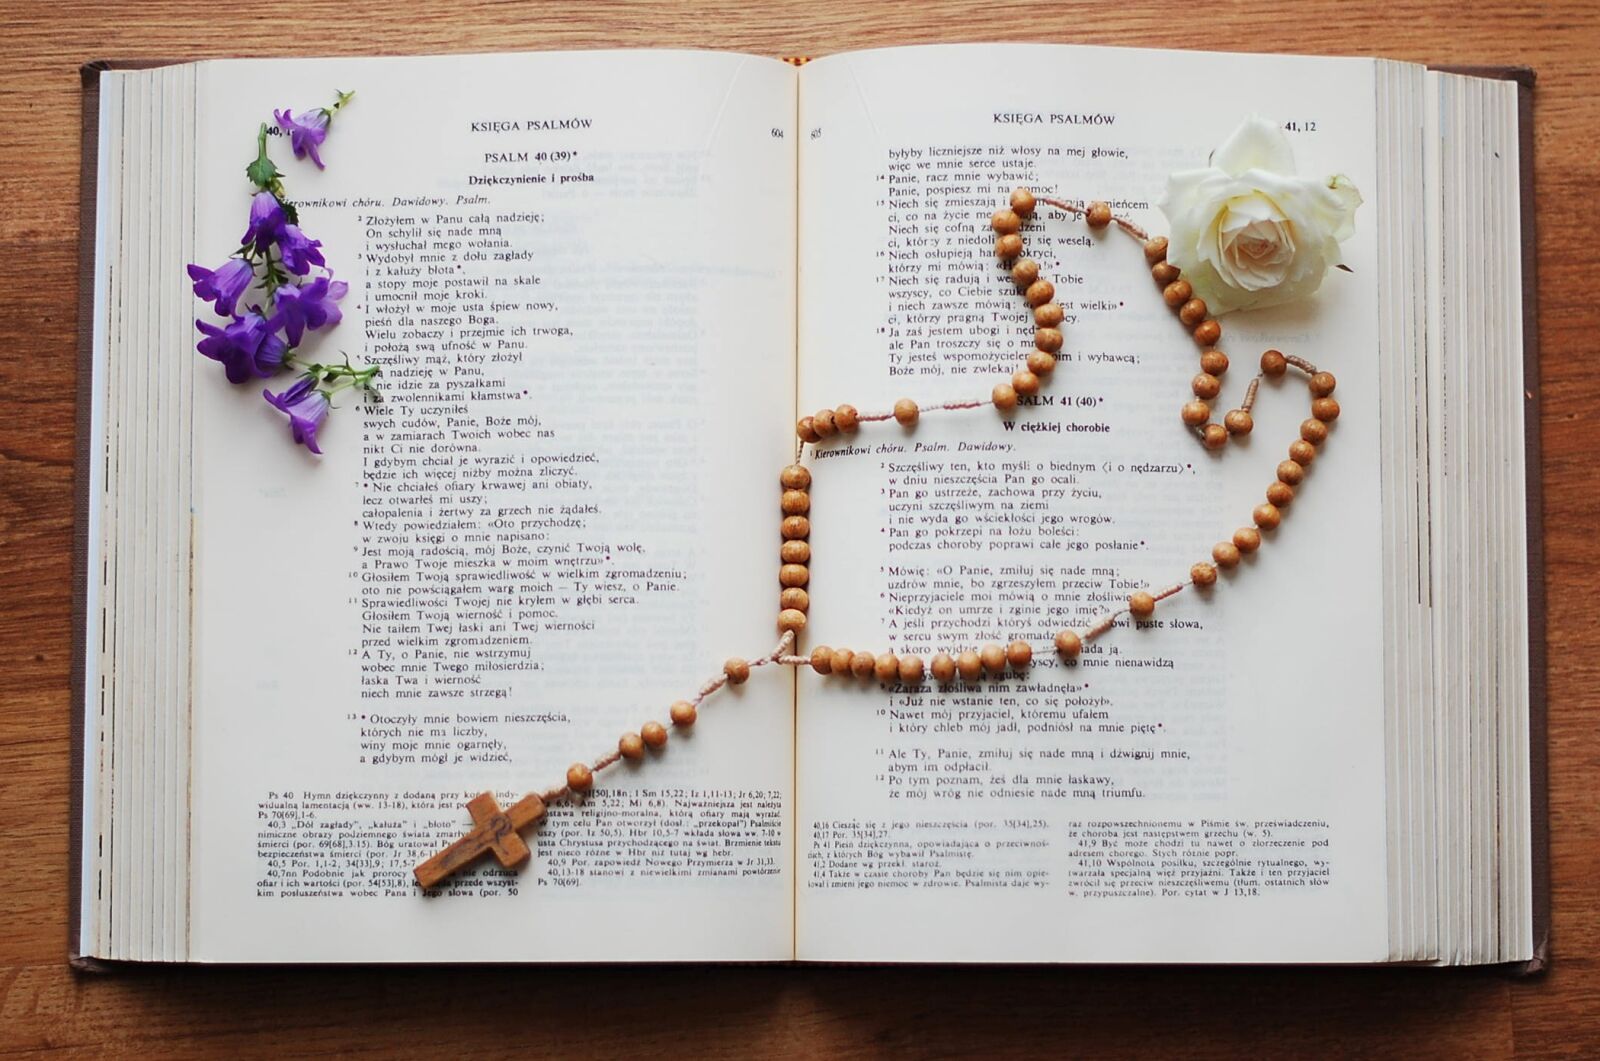 KSIĘGA PSALMÓW
604
PSALM 40 (39)*
Dziękczynienie i prośba
Kierownikowi chóru. Dawidowy. Psalm.
2 Złożyłem w Panu całą nadzieję;
On schylił się nade mną
i wysłuchał mego wołania.
3 Wydobył mnie z dołu zagłady
i z kałuży błota*,
a stopy moje postawił na skale
i umocnił moje kroki.
4 I włożył w moje usta śpiew nowy,
pieśń dla naszego Boga.
Wielu zobaczy i przejmie ich trwoga,
i położą swą ufność w Panu.
5 Szczęśliwy mąż, który złożył
nadzieję w Panu,
a nie idzie za pyszałkami
i za zwolennikami kłamstwa*.
6 Wiele Ty uczyniłeś
swych cudów, Panie, Boże mój,
a w zamiarach Twoich wobec nas
nikt Ci nie dorówna.
I gdybym chciał je wyrazić i opowiedzieć,
będzie ich więcej niżby można zliczyć.
7 * Nie chciałeś ofiary krwawej ani obiaty,
lecz otwarłeś mi uszy;
całopalenia i żertwy za grzech nie żądałeś.
8 Wtedy powiedziałem: «Oto przychodzę;
w zwoju księgi o mnie napisano:
9 Jest moją radością, mój Boże, czynić Twoją wolę,
a Prawo Twoje mieszka w moim wnętrzu»*.
10 Głosiłem Twoją sprawiedliwość w wielkim zgromadzeniu;
oto nie powściągałem warg moich — Ty wiesz, o Panie.
11 Sprawiedliwości Twojej nie kryłem w głębi serca.
Głosiłem Twoją wierność i pomoc.
Nie taiłem Twej łaski ani Twej wierności
przed wielkim zgromadzeniem.
12 A Ty, o Panie, nie wstrzymuj
wobec mnie Twego miłosierdzia;
łaska Twa i wierność
niech mnie zawsze strzegą!
13 * Otoczyły mnie bowiem nieszczęścia,
których nie ma liczby,
winy moje mnie ogarnęły,
a gdybym mógł je widzieć,
Ps 40 Hymn dziękczynny z dodaną przy indy-
widualną lamentacją (ww. 13-18), która jest
Ps 70[69],1-6.
40,3 „Dół zagłady”, „kałuża” i „błoto” —
nimiczne obrazy podziemnego świata
śmierci (por. 69[68],3.15). Bóg uratował
bezpieczeństwa śmierci (por. Jr 38,6-
40,5 Por. 1,1-2, 34[33],9; 17,5-7
40,7nn Podobnie jak prorocy nie odrzuca
ofiar i ich wartości (por. 54[53],8), przede wszyst-
kim posłuszeństwa wobec Pana i Jego słowa (por. 50
[50],18n; I Sm 15,22; Iz 1,11-13; Jr 6,20; 7,22;
6,6; Am 5,22; Mi 6,8). Najważniejsza jest należyta
postawa religijno-moralna, którą ofiary mają wyrażać.
W tym celu Pan otworzył (dosł.: „przekopał”) Psalmiście
uszy (por. Iz 50,5). Hbr 10,5-7 wkłada słowa ww. 7-10 w
usta Chrystusa przychodzącego na świat. Brzmienie tekstu
jest nieco różne w Hbr niż tutaj wg hebr.
40,9 Por. zapowiedź Nowego Przymierza w Jr 31,33.
40,13-18 stanowi z niewielkimi zmianami powtórzenie
Ps 70[69].
605
KSIĘGA PSALMÓW
41, 12
byłyby liczniejsze niż włosy na mej głowie,
więc we mnie serce ustaje.
14 Panie, racz mnie wybawić;
Panie, pospiesz mi na pomoc!
15 Niech się zmieszają i rumieńcem
ci, co na życie me aby je
Niech się cofną
ci, którzy z niedoli się weselą.
16 Niech osłupieją okryci,
którzy mi mówią:
17 Niech się radują i Tobie
wszyscy, co Ciebie
i niech zawsze mówią: jest wielki»*
ci, którzy pragną Twojej pomocy.
18 Ja zaś jestem ubogi i
ale Pan troszczy się o
Ty jesteś wspomożycielem moim i wybawcą;
Boże mój, nie zwlekaj!
PSALM 41 (40)*
W ciężkiej chorobie
1 Kierownikowi chóru. Psalm. Dawidowy.
2 Szczęśliwy ten, kto myśli o biednym ⟨i o nędzarzu⟩*,
w dniu nieszczęścia Pan go ocali.
3 Pan go ustrzeże, zachowa przy życiu,
uczyni szczęśliwym na ziemi
i nie wyda go wściekłości jego wrogów.
4 Pan go pokrzepi na łożu boleści:
podczas choroby poprawi całe jego posłanie*.
5 Mówię: «O Panie, zmiłuj się nade mną;
uzdrów mnie, bo zgrzeszyłem przeciw Tobie!»
6 Nieprzyjaciele moi mówią o mnie złośliwie:
«Kiedyż on umrze i zginie jego imię?»
7 A jeśli przychodzi któryś odwiedzić, mówi puste słowa,
w sercu swym złość gromadzi
a skoro wyjdzie ją.
co mnie nienawidzą
zgubę:
9 «Zaraza złośliwa nim zawładnęła»*
i «Już nie wstanie ten, co się położył».
10 Nawet mój przyjaciel, któremu ufałem
i który chleb mój jadł, podniósł na mnie piętę*.
11 Ale Ty, Panie, zmiłuj się nade mną i dźwignij mnie,
abym im odpłacił.
12 Po tym poznam, żeś dla mnie łaskawy,
że mój wróg nie odniesie nade mną triumfu.
40,16 Ciesząc się z jego nieszczęścia (por. 35[34],25).
40,17 Por. 35[34],27.
Ps 41 Pieśń dziękczynna, opowiadająca o przeciwnoś-
ciach, z których Bóg wybawił Psalmistę.
41,2 Dodane wg przekł. staroż.
41,4 Także w czasie choroby Pan będzie się nim opie-
kował i zmieni jego niemoc w zdrowie. Psalmista daje wy-
raz rozpowszechnionemu w Piśmie św. przeświadczeniu,
że choroba jest następstwem grzechu (w. 5).
41,9 Być może chodzi tu nawet o złorzeczenie pod
adresem chorego. Stych różnie popr.
41,10 Wspólnota posiłku, szczególnie rytualnego, wy-
twarzała specjalną więź przyjaźni. Także i ten przyjaciel
zwrócił się przeciw nieszczęśliwemu (tłum. ostatnich słów
w. przypuszczalne). Por. cytat w J 13,18.